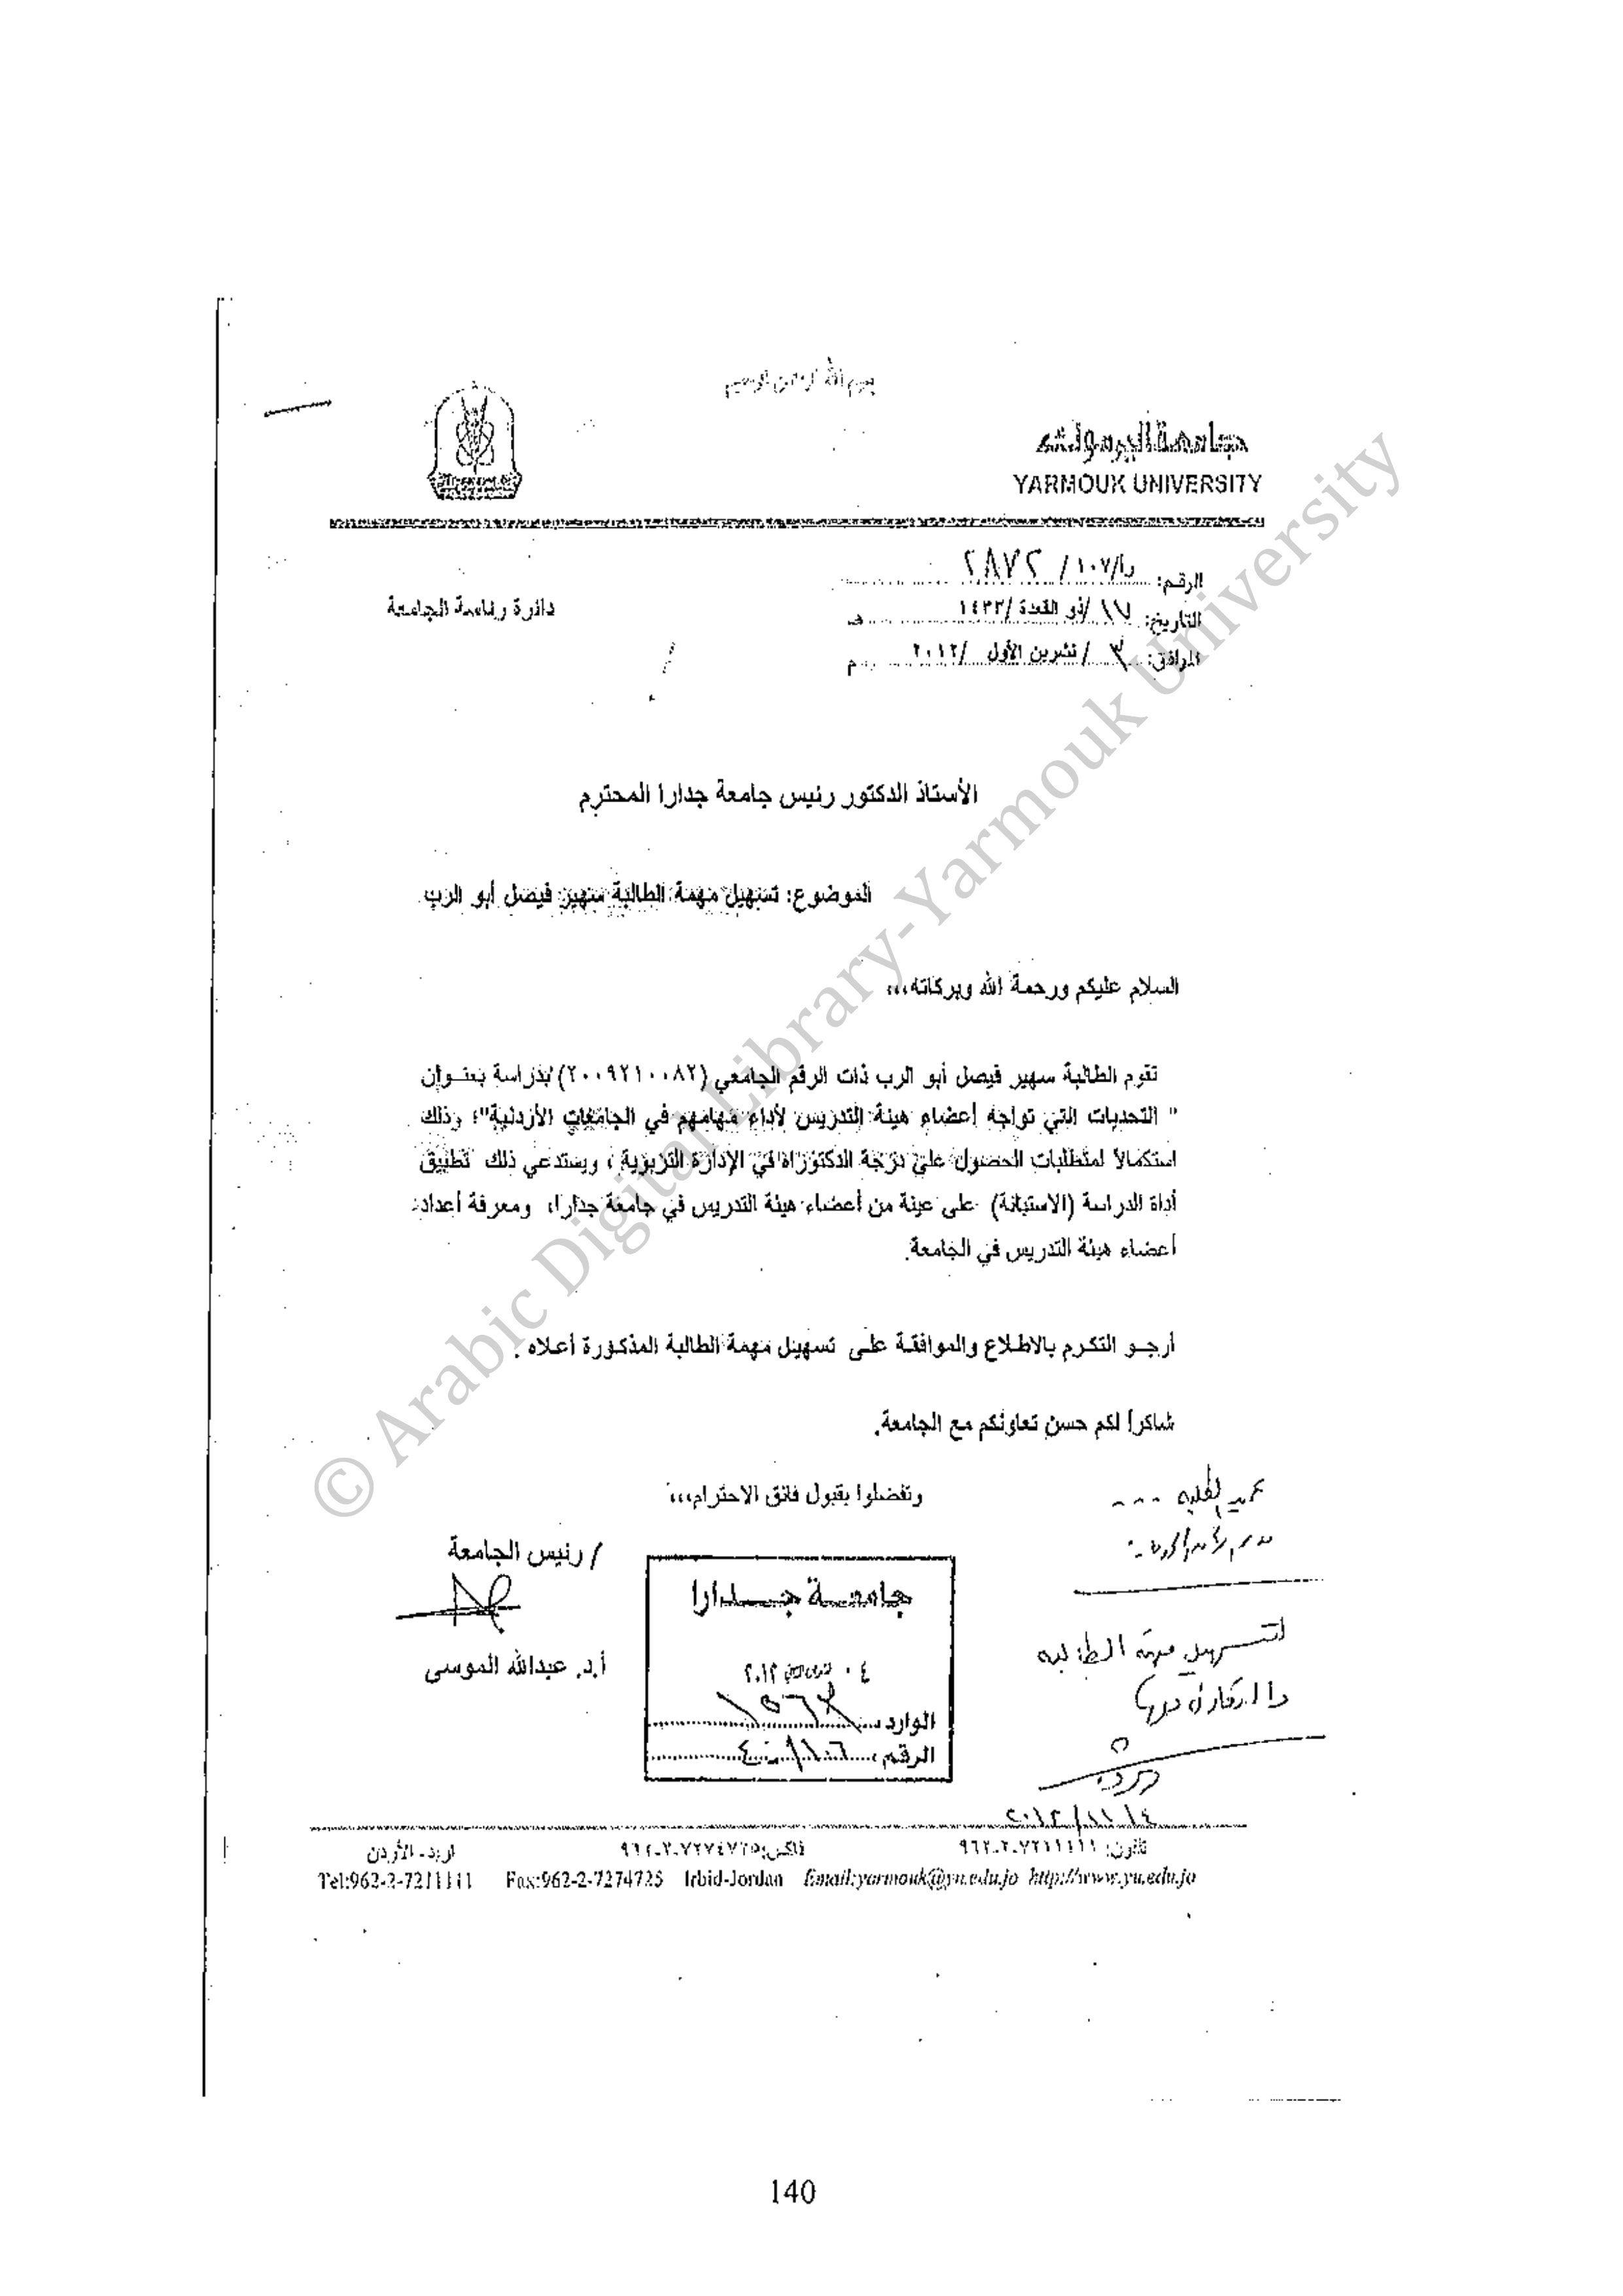 بسم الله الرحمن الرحيم
جامعة اليرموك
YARMOUK UNIVERSITY
الرقم: ر/١٠٧/٢٨٧٢
التاريخ: ١٧/ذو القعدة/١٤٣٣ هـ
الموافق: ٣/تشرين الأول/٢٠١٢ م
دائرة رئاسة الجامعة
الأستاذ الدكتور رئيس جامعة جدارا المحترم
الموضوع: تسهيل مهمة الطالبة سهير فيصل أبو الرب
السلام عليكم ورحمة الله وبركاته،،،
تقوم الطالبة سهير فيصل أبو الرب ذات الرقم الجامعي (٢٠٠٩٢١٠٠٨٢) بدراسة بعنوان
" التحديات التي تواجه أعضاء هيئة التدريس لأداء مهامهم في الجامعات الأردنية"؛ وذلك
استكمالاً لمتطلبات الحصول على درجة الدكتوراة في الإدارة التربوية ، ويستدعي ذلك تطبيق
أداة الدراسة (الاستبانة) على عينة من أعضاء هيئة التدريس في جامعة جدارا، ومعرفة أعداد
أعضاء هيئة التدريس في الجامعة.
أرجو التكرم بالاطلاع والموافقة على تسهيل مهمة الطالبة المذكورة أعلاه .
شاكراً لكم حسن تعاونكم مع الجامعة.
وتفضلوا بقبول فائق الاحترام،،،
/ رئيس الجامعة
أ.د. عبدالله الموسى
جامعة جدارا
٠٤ ٢٠١٢
الوارد ١٥٦٣
الرقم
لتسهيل مهمة الطالبة
تلفون: ٩٦٢-٢-٧٢١١١١١ فاكس: ٩٦٢-٢-٧٢٧٤٧٢٥ اربد - الأردن
Tel:962-2-7211111 Fax:962-2-7274725 Irbid-Jordan Email:yarmouk@yu.edu.jo http://www.yu.edu.jo
© Arabic Digital Library-Yarmouk University
140